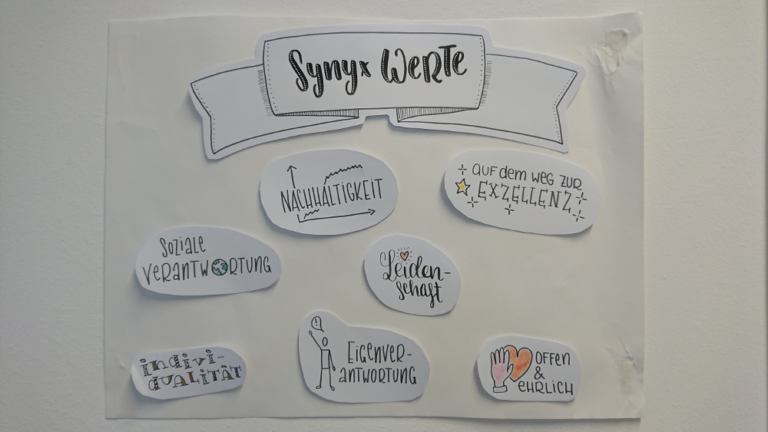 Synyx Werte
NACHHALTIGKEIT
auf dem Weg zur
EXZELLENZ
Soziale
Verantwortung
Leiden-
schaft
indivi-
dualität
Eigenver-
antwortung
offen
&
ehrlich